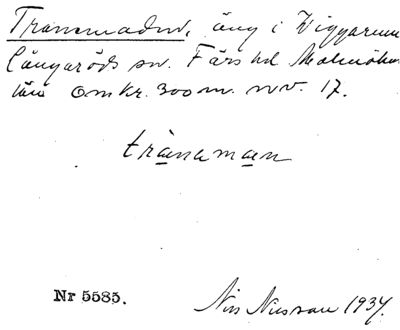 Tranemaden, äng i Viggarum
Långaröds sn. Färs hd Malmöhus
län omkr. 300 m. nv. 17.
tránaman
Nr 5585.
Nils Nilsson 1937.